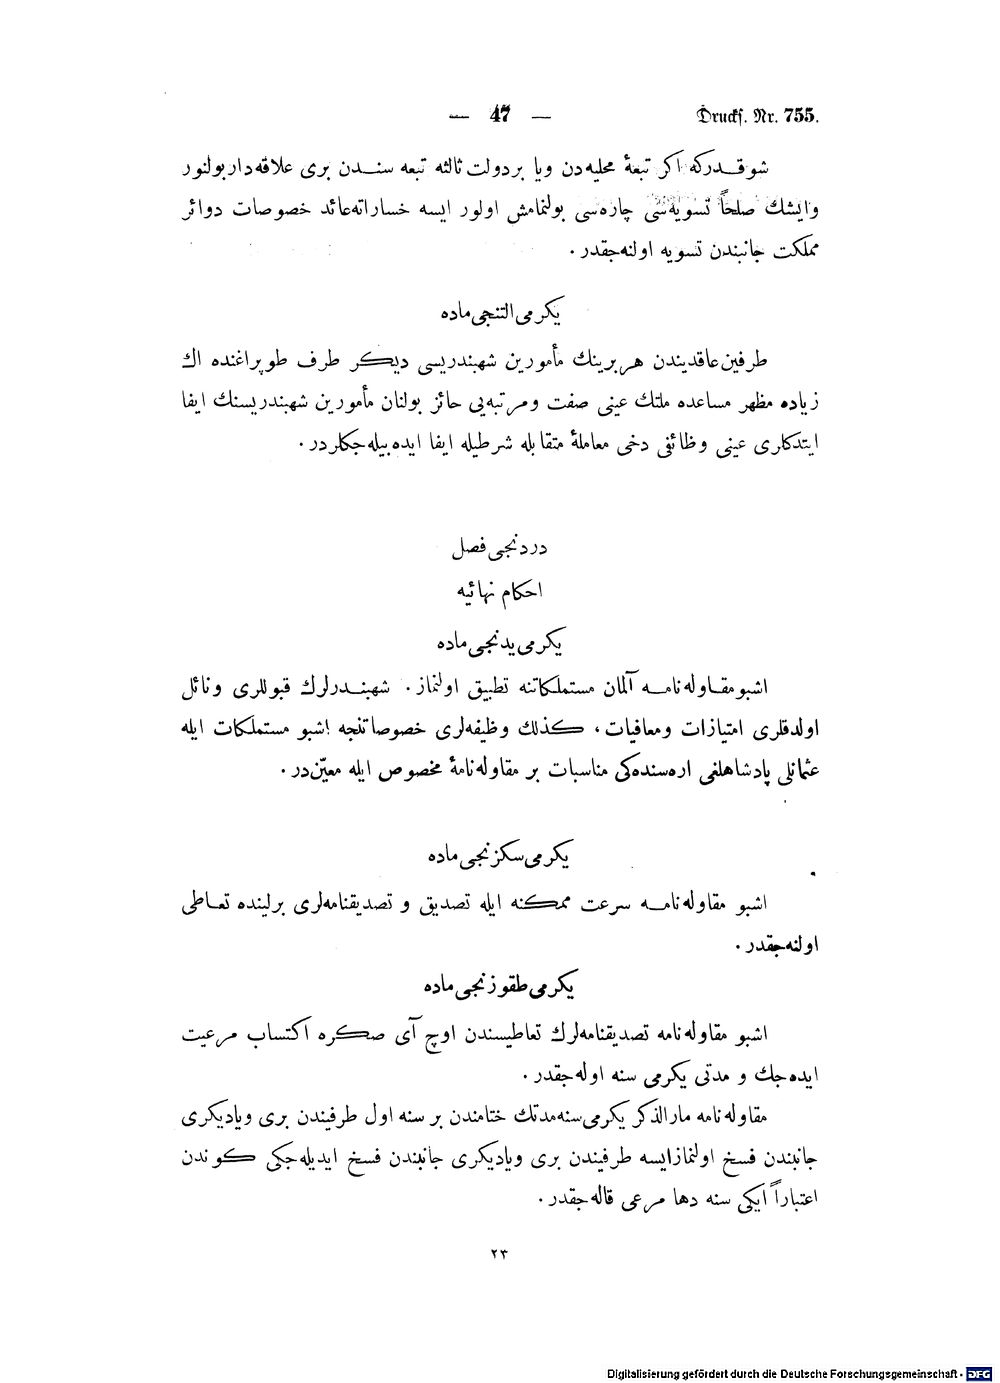 — 47 —
Drucks. Nr. 755.
شو قدركه اكر تبعهٔ محليه‌دن ويا بر دولت ثالثه تبعه سندن برى علاقه‌دار بولنور
وايشك صلحاً تسويه‌سى چاره‌سى بولنمامش اولور ايسه خساراته عائد خصوصات دوائر
مملكت جانبندن تسويه اولنه‌جقدر .
يكرمى التنجى ماده
طرفين عاقديندن هر برينك مأمورين شهبندريسى ديكر طرف طوپراغنده اك
زياده مظهر مساعده ملتك عينى صفت و مرتبه‌يى حائز بولنان مأمورين شهبندريسنك ايفا
ايتدكارى عينى وظائفى دخى معاملهٔ متقابله شرطيله ايفا ايده بيله‌جكلردر .
دردنجى فصل
احكام نهائيه
يكرمى يدنجى ماده
اشبو مقاوله‌نامه آلمان مستملكاتنه تطبيق اولنماز . شهبندرلرك قبوللرى ونائل
اولدقلرى امتيازات ومعافيات ، كذلك وظيفه‌لرى خصوصاتنجه اشبو مستملكات ايله
عثمانلى پادشاهلغى اره‌سنده‌كى مناسبات بر مقاوله‌نامهٔ مخصوص ايله معيّن‌در .
يكرمى سكزنجى ماده
اشبو مقاوله‌نامه سرعت ممكنه ايله تصديق و تصديقنامه‌لرى برلينده تعاطى
اولنه‌جقدر .
يكرمى طقوزنجى ماده
اشبو مقاوله‌نامه تصديقنامه‌لرك تعاطيسندن اوچ آى صكره اكتساب مرعيت
ايده‌جك و مدتى يكرمى سنه اوله‌جقدر .
مقاوله‌نامه مارالذكر يكرمى سنه مدتك ختامندن بر سنه اول طرفيندن برى وياديكرى
جانبندن فسخ اولنماز ايسه طرفيندن برى وياديكرى جانبندن فسخ ايديله‌جكى كوندن
اعتباراً ايكى سنه دها مرعى قاله‌جقدر .
٢٣
Digitalisierung gefördert durch die Deutsche Forschungsgemeinschaft - DFG